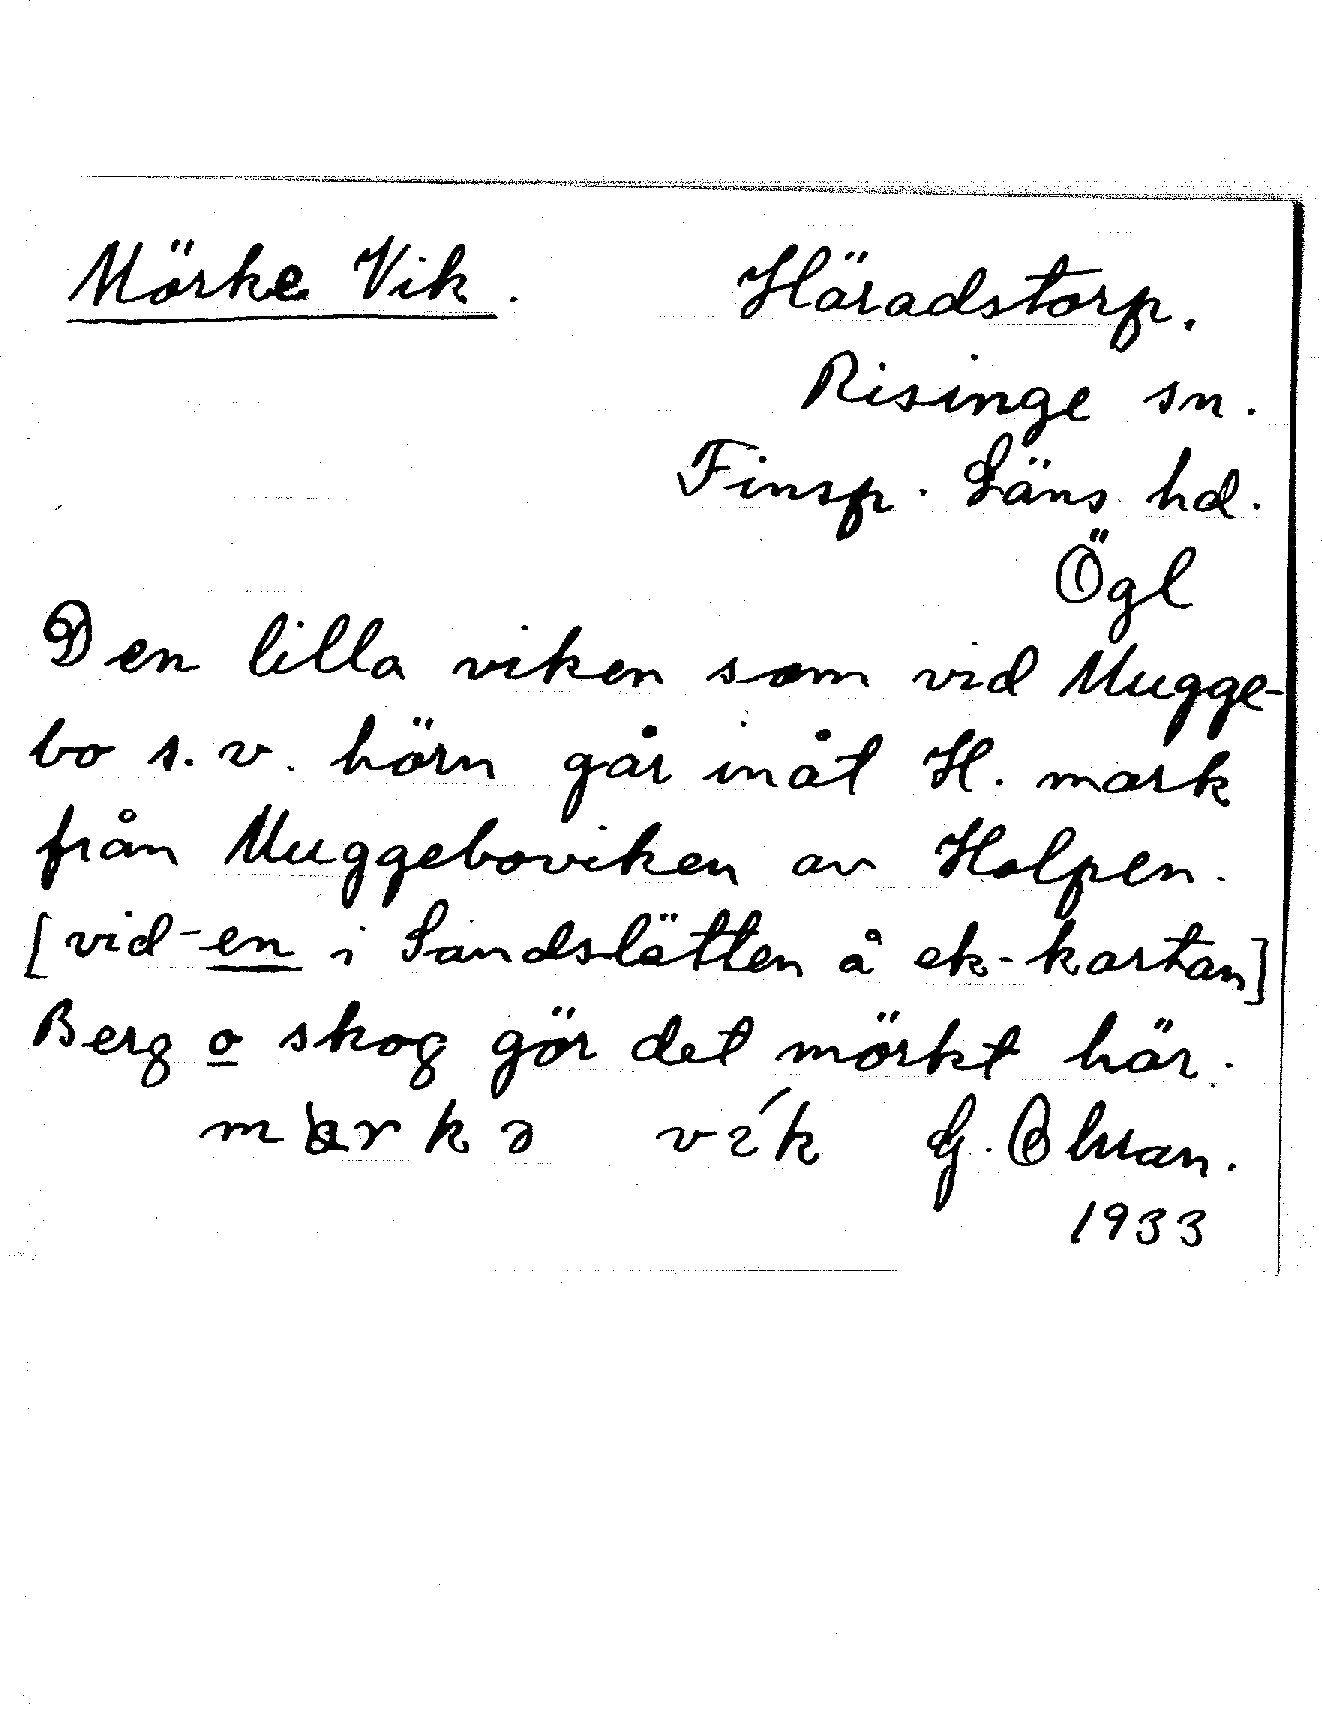 Mörke Vik.
Häradstorp.
Risinge sn.
Finsp. Läns hd.
Ögl
Den lilla viken som vid Mugge-
bo s.v. hörn går inåt H. mark
från Muggeboviken av Holpen.
[vid -en i Sandslätten å ek-kartan]
Berg o skog gör det mörkt här.
rkə vík G. Ohman.
1933